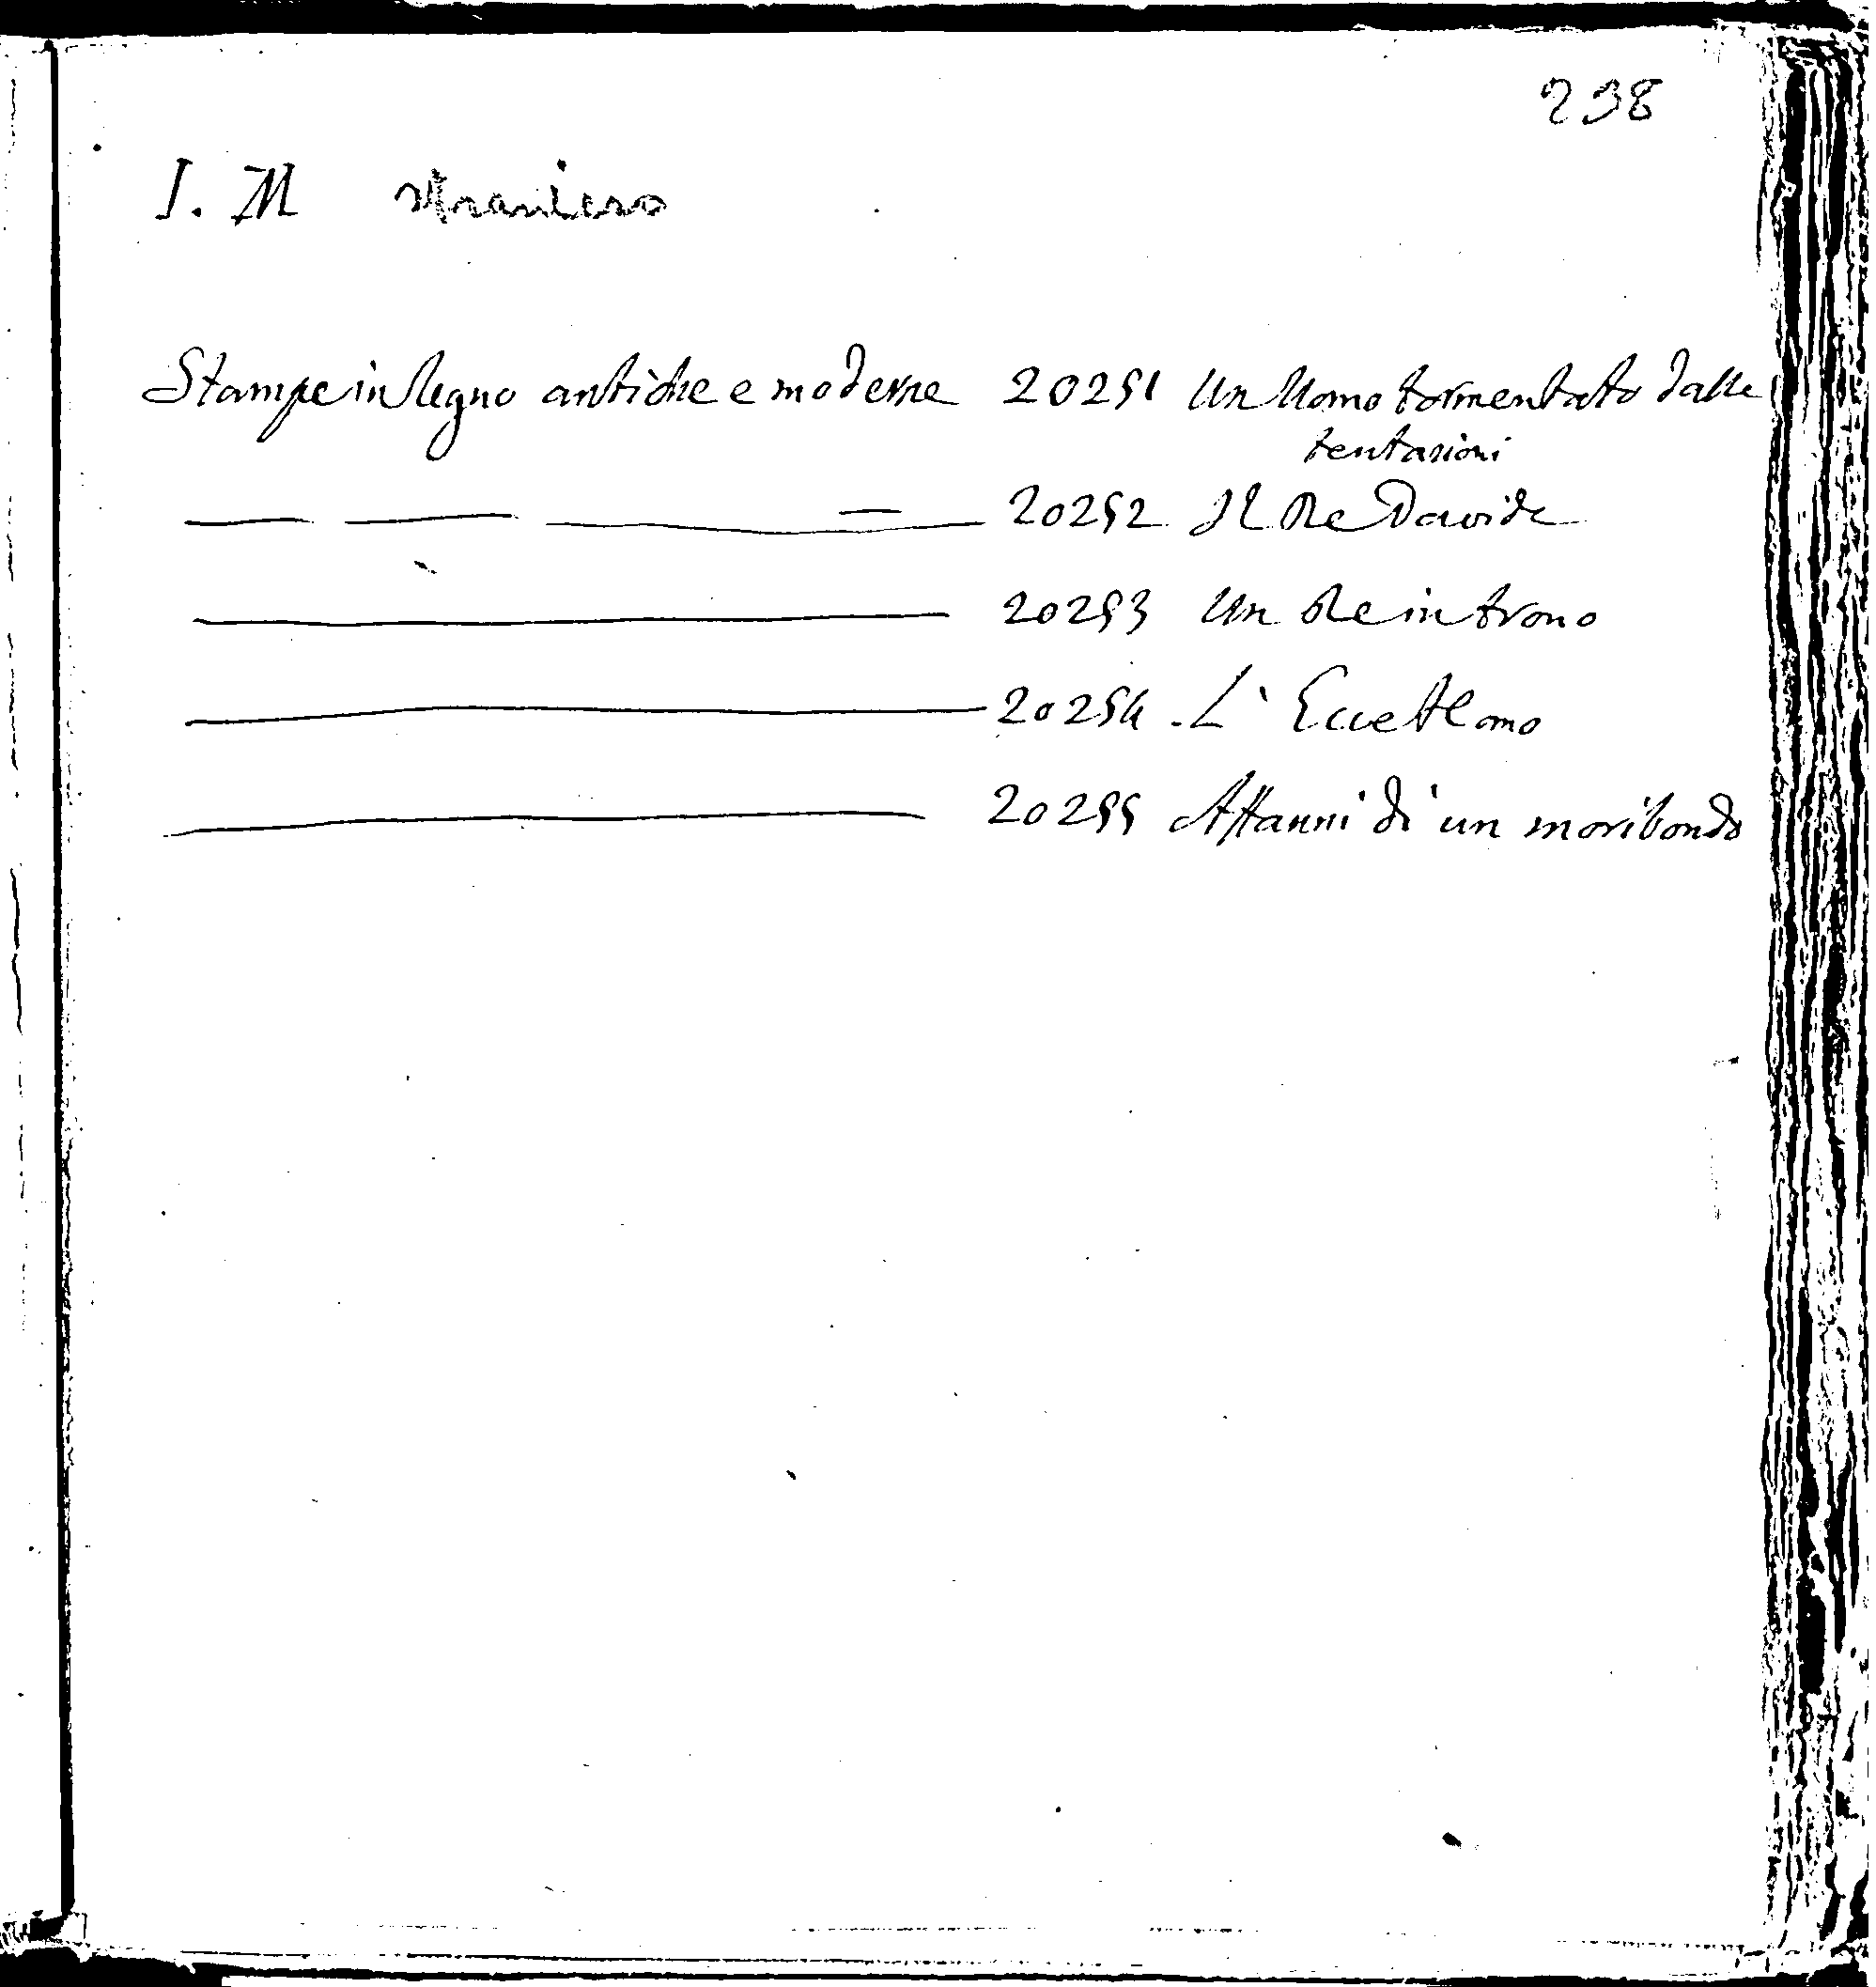 238
I. M straniero
Stampe in legno antiche e moderne 20251 Un Uomo tormentato dalle
tentasioni
20252 Il Re Davide
20253 Un Re in trono
20254 L' Ecce Homo
20255 Affanni di un moribondo